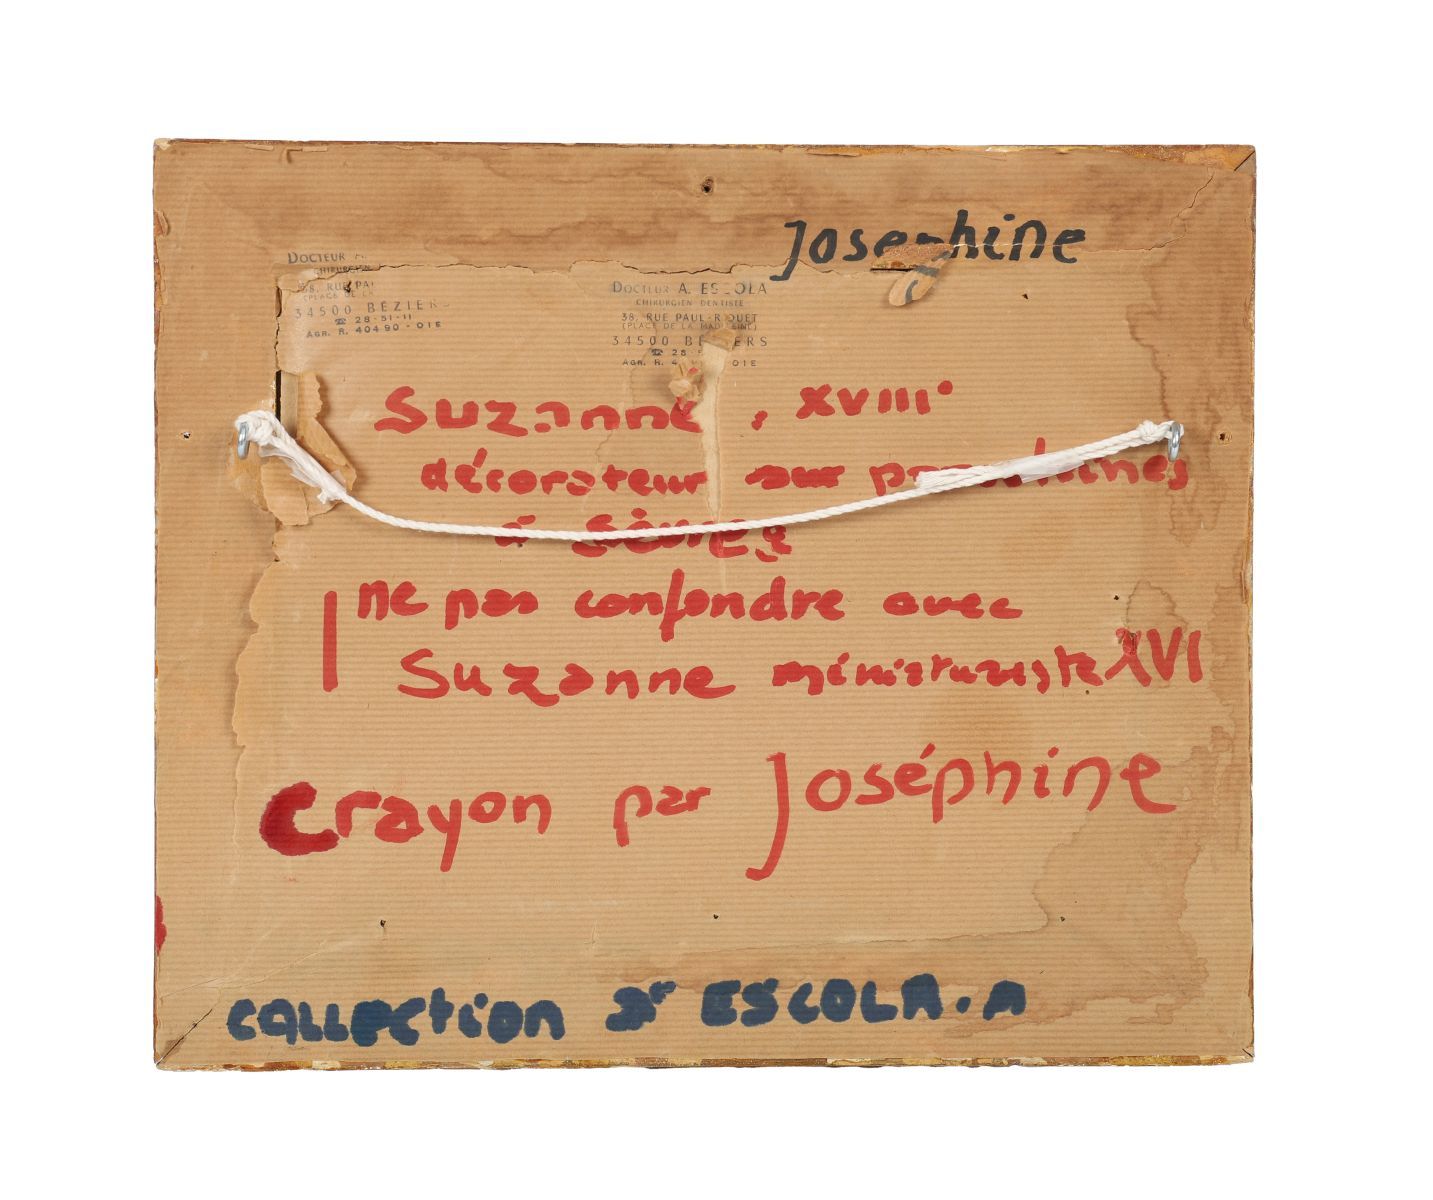 Josephine
DOCTEUR
CHIRURGIEN
38, RUE PAU
(PLACE DE LA
34500 BÉZIERS
☎ 28-51-11
AGR. R. 40490 - 01E
DOCTEUR A. ESCOLA
CHIRURGIEN DENTISTE
38, RUE PAUL-RIQUET
(PLACE DE LA MADELEINE)
34500 BÉZIERS
☎ 28
AGR. R. 4 01E
Suzanne, XVIIIe
décorateur sur porcelaines
à Sèvres
ne pas confondre avec
Suzanne miniaturiste XVI
Crayon par Joséphine
COLLECTION Dr ESCOLA. A